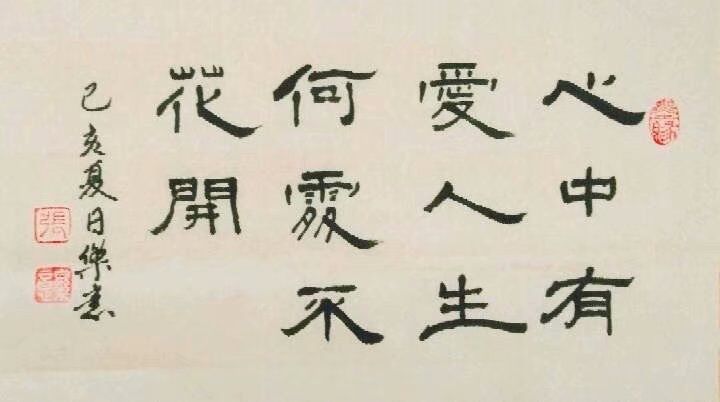 心中有
愛人生
何處不
花開
己亥夏日樂意
張